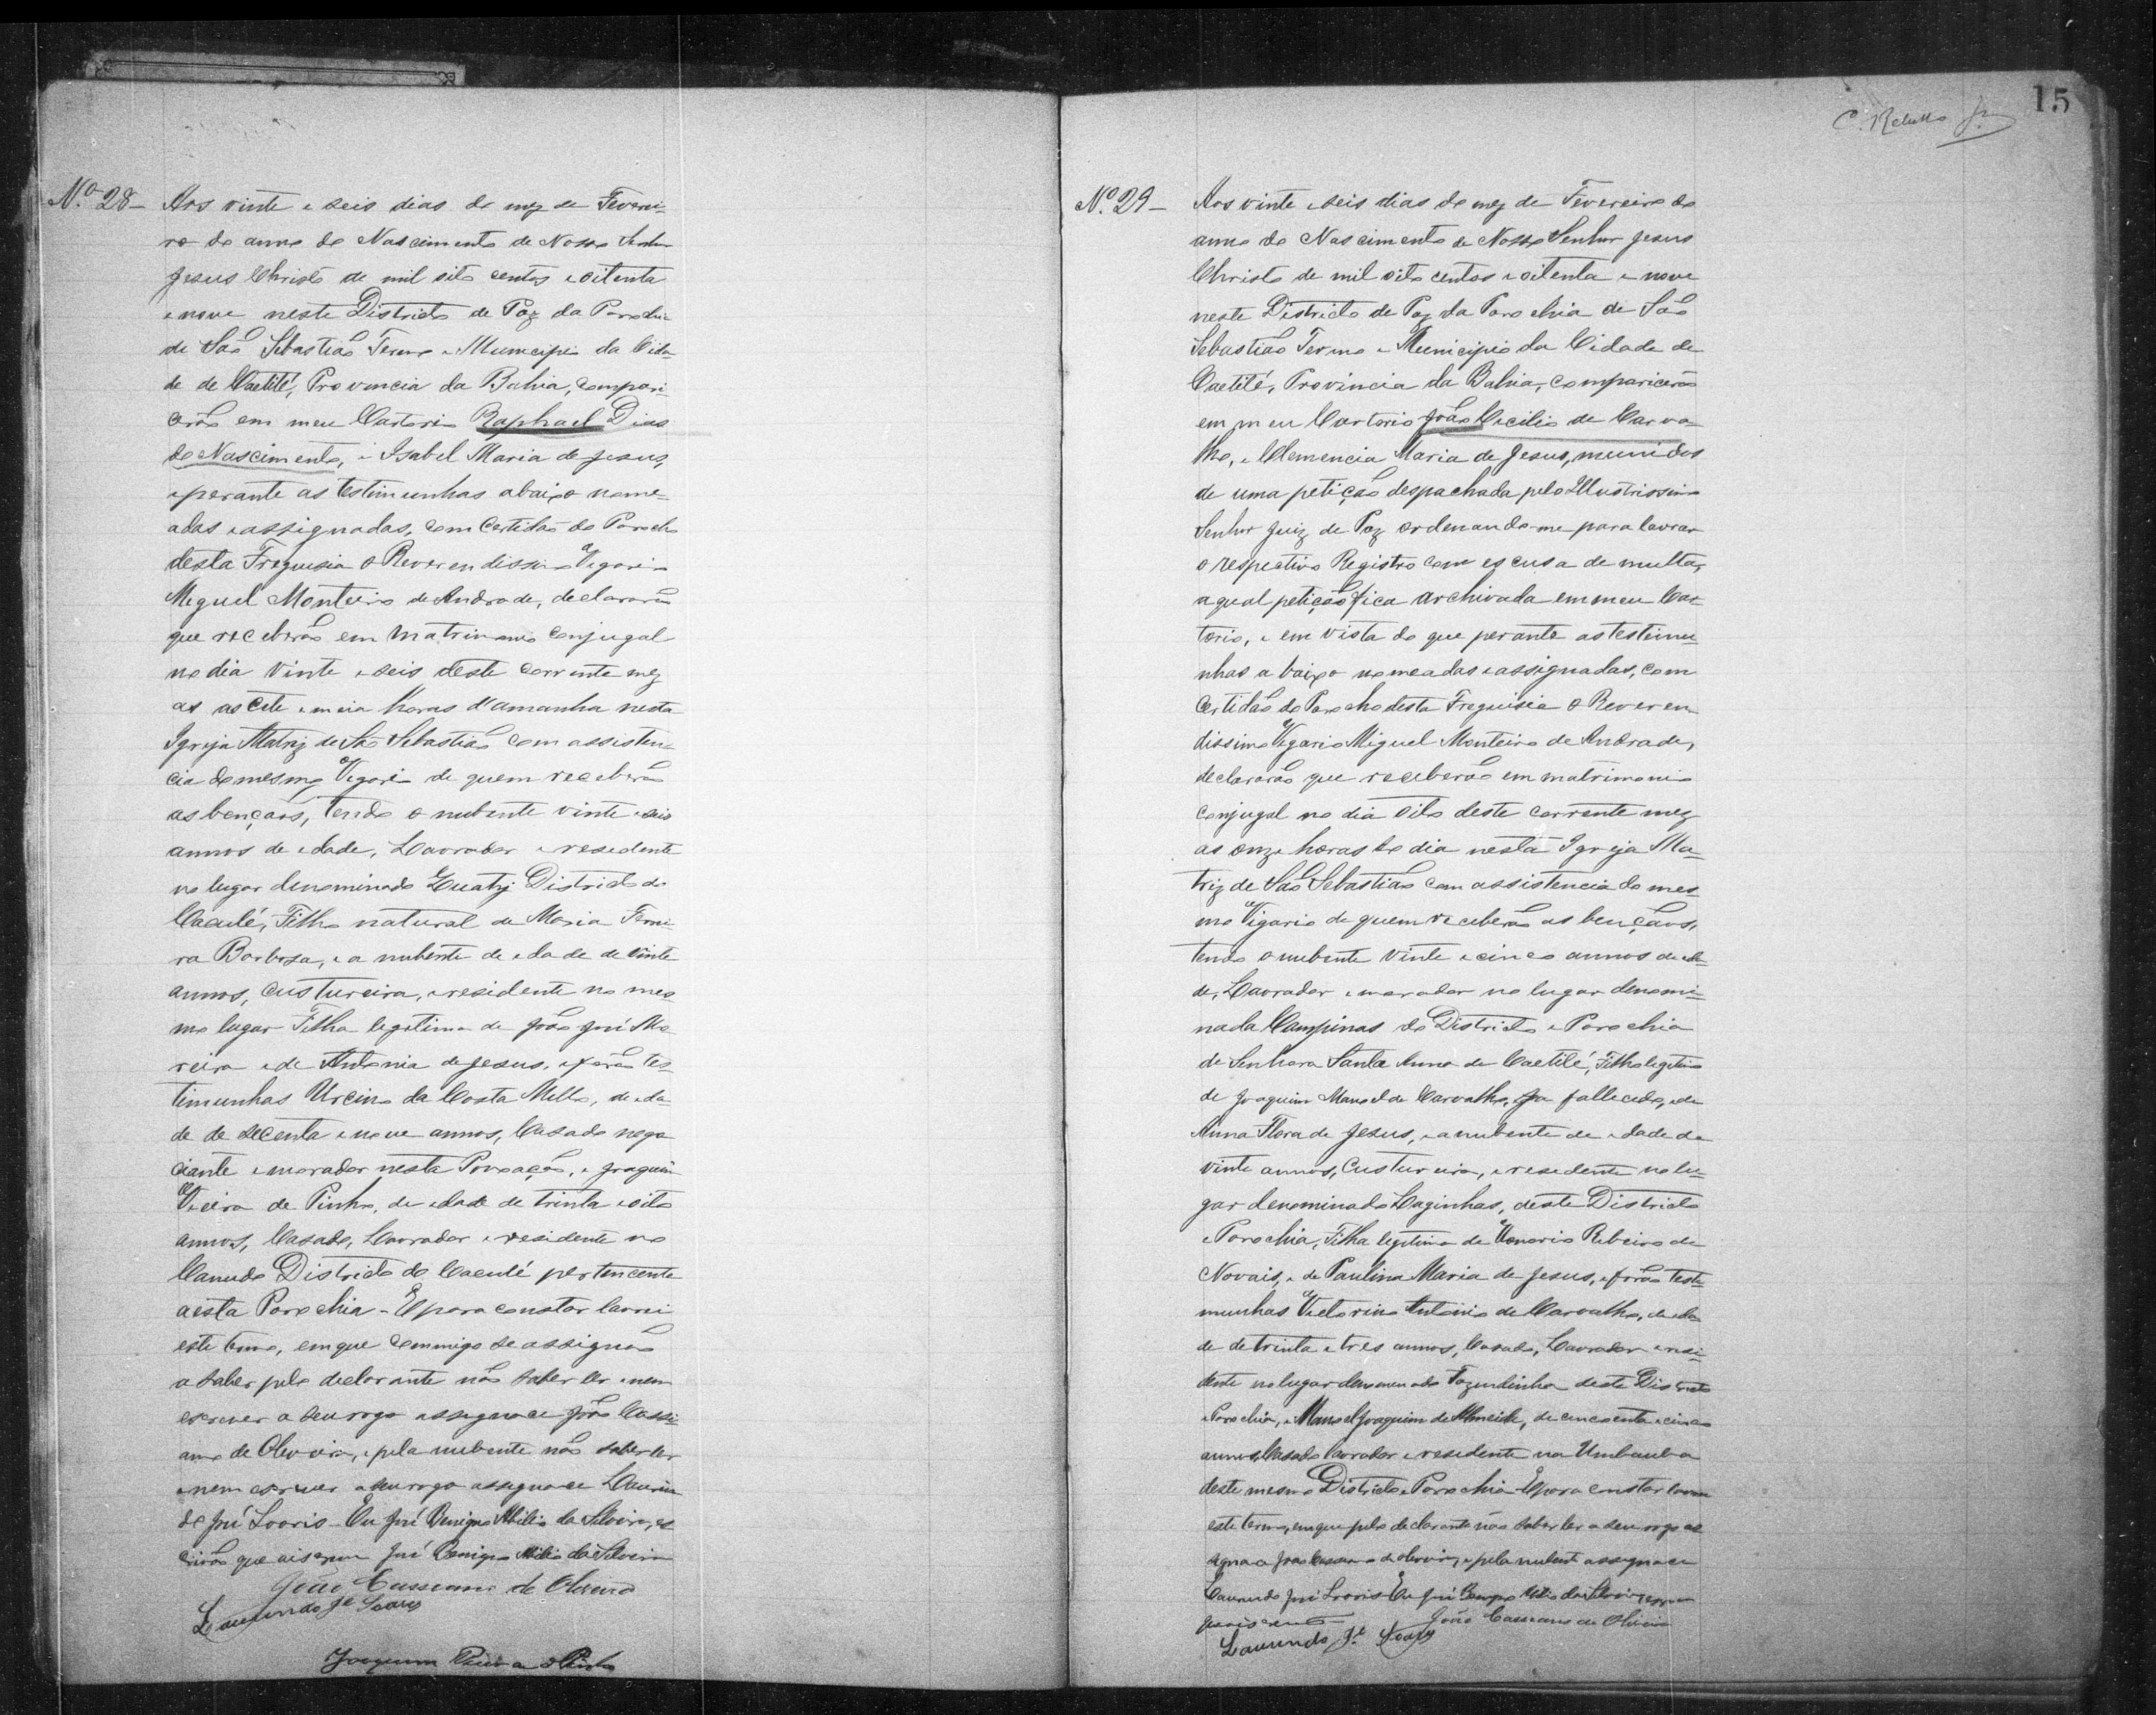 Nº 28 – Aos vinte e seis dias do mez de Feverei-
ro do anno do Nascimento de Nosso Senhor
Jesus Christo de mil oito centos e oitenta
e nove neste Districto de Paz da Parochia
de São Sebastião Termo e Municipio da Cida-
de de Caetité, Provincia da Bahia, compari-
cerão em meu Cartorio Raphael Dias
do Nascimento, e Isabel Maria de Jesus,
e perante as testimunhas abaixo nome-
adas e assignadas, com Certidão do Parocho
desta Freguisia o Reverendissimo Vigario
Miguel Monteiro de Andrade, declararão
que receberão em matrimonio conjugal
no dia vinte e seis deste corrente mez
as as cete e meia horas d'amanha nesta
Igreja Matriz de São Sebastião com assisten-
cia do mesmo Vigario de quem receberão
as bençãos, tendo o nubente vinte e seis
annos de edade, Lavrador e residente
no lugar denominado Districto do
Caculé, Filho natural de Maria Ferrei-
ra Barbosa, e a nubente de edade de vinte
annos, custureira, e residente no mes-
mo lugar Filha legitima de João José Mo-
reira e de Antonia de Jesus, e forão tes-
timunhas Urcino da Costa Mello, de eda-
de de secenta e nove annos, Casado nego-
ciante e morador nesta Povoação, e Joaquim
Vieira de Pinho, de edade de trinta e oito
annos, Casado, Lavrador e residente no
Canudo Districto do Caculé pertencente
a esta Parochia – E para constar lavrei
este termo, em que commigo se assignão
a saber pelo declarante não saber ler e nem
escrever a seu rogo assignace João Cassi-
ano de Oliveira, e pela nubente não saber ler
e nem escrever a seu rogo assignace Laurin-
do José Soares – Eu José Benigno Abilio da Silveira, es-
crivão que o iscrevi José Benigno Abilio da Silveira
João Cassiano de Oliveira
Laurindo Jé Soares
Joaquim Vieira de Pinho
15
C. Rebello Jr
Nº 29 – Aos vinte e seis dias do mez de Fevereiro do
anno do Nascimento de Nosso Senhor Jesus
Christo de mil oito centos e oitenta e nove
neste Districto de Paz da Parochia de São
Sebastião Termo e Municipio da Cidade de
Caetité, Provincia da Bahia, comparicerão
em meu Cartorio João Cecilio de Carva-
lho, e Clemencia Maria de Jesus, munidos
de uma petição despachada pelo Illustrissimo
Senhor Juiz de Paz ordenando-me para lavrar
o respectivo Registro com escusa de multa,
a qual petição fica archivada em meu Car-
torio, e em vista do que perante as testimu-
nhas abaixo nomeadas e assignadas, com
Certidão do Parocho desta Freguisia o Reveren-
dissimo Vigario Miguel Monteiro de Andrade,
declararão que receberão em matrimonio
conjugal no dia oito deste corrente mez
as onze horas do dia nesta Igreja Ma-
triz de São Sebastião com assistencia do mes-
mo Vigario de quem receberão as bençãos,
tendo o nubente vinte e cinco annos de eda-
de, Lavrador e morador no lugar denomi-
nada Campinas do Districto e Parochia
de Senhora Santa Anna de Caetité, Filho legitimo
de Joaquim Manoel de Carvalho, ja fallecido, e de
Anna Flora de Jesus, e a nubente de edade de
vinte annos, custureira, e residente no lu-
gar denominado Laginhas, deste Districto
e Parochia, Filha legitima de Honorio Ribeiro de
Novais, e de Paulina Maria de Jesus, e forão teste-
munhas Victorino Antonio de Carvalho, de eda-
de de trinta e tres annos, Casado, Lavrador e resi-
dente no lugar denominado Fazendinha deste Districto
e Parochia, e Manoel Joaquim de Almeida, de cincoenta e cinco
annos, Casado Lavrador e residente na Umbauba
deste mesmo Districto e Parochia – E para constar lavrei
este termo, em que pelo declarante não saber ler a seu rogo as-
signa a João Cassiano de Oliveira, e pela nubente assignace
Laurindo José Soares – Eu José Benigno Abilio da Silveira
João Cassiano de Oliveira
Laurindo Jé Soares